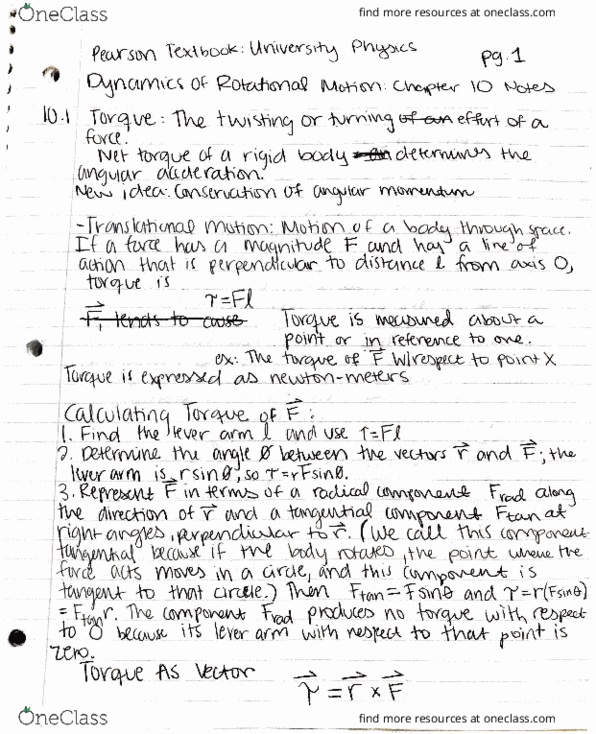 OneClass find more resources at oneclass.com
Pearson Textbook: University Physics pg.1
Dynamics of Rotational Motion: Chapter 10 Notes
10.1 Torque: The twisting or turning of an effort of a
force.
Net torque of a rigid body determines the
angular acceleration.
New idea: Conservation of angular momentum
-Translational Motion: Motion of a body through space.
If a force has a magnitude F and has a line of
action that is perpendicular to distance l from axis O,
torque is
τ=Fl
F, tends to cause Torque is measured about a
point or in reference to one.
ex: The torque of F⃗ w/respect to point X
Torque is expressed as newton-meters
Calculating Torque of F⃗:
1. Find the lever arm l and use τ=Fl
2. Determine the angle Ø between the vectors r⃗ and F⃗; the
lever arm is r sinØ, so τ=rFsinØ.
3. Represent F⃗ in terms of a radical component Frad along
the direction of r⃗ and a tangential component Ftan at
right angles, perpendicular to r⃗. (We call this component
tangential because if the body rotates, the point where the
force acts moves in a circle, and this component is
tangent to that circle.) Then Ftan=Fsinθ and τ=r(Fsinθ)
=Ftan r. The component Frad produces no torque with respect
to O because its lever arm with respect to that point is
zero.
Torque As Vector τ⃗ = r⃗ × F⃗
OneClass find more resources at oneclass.com